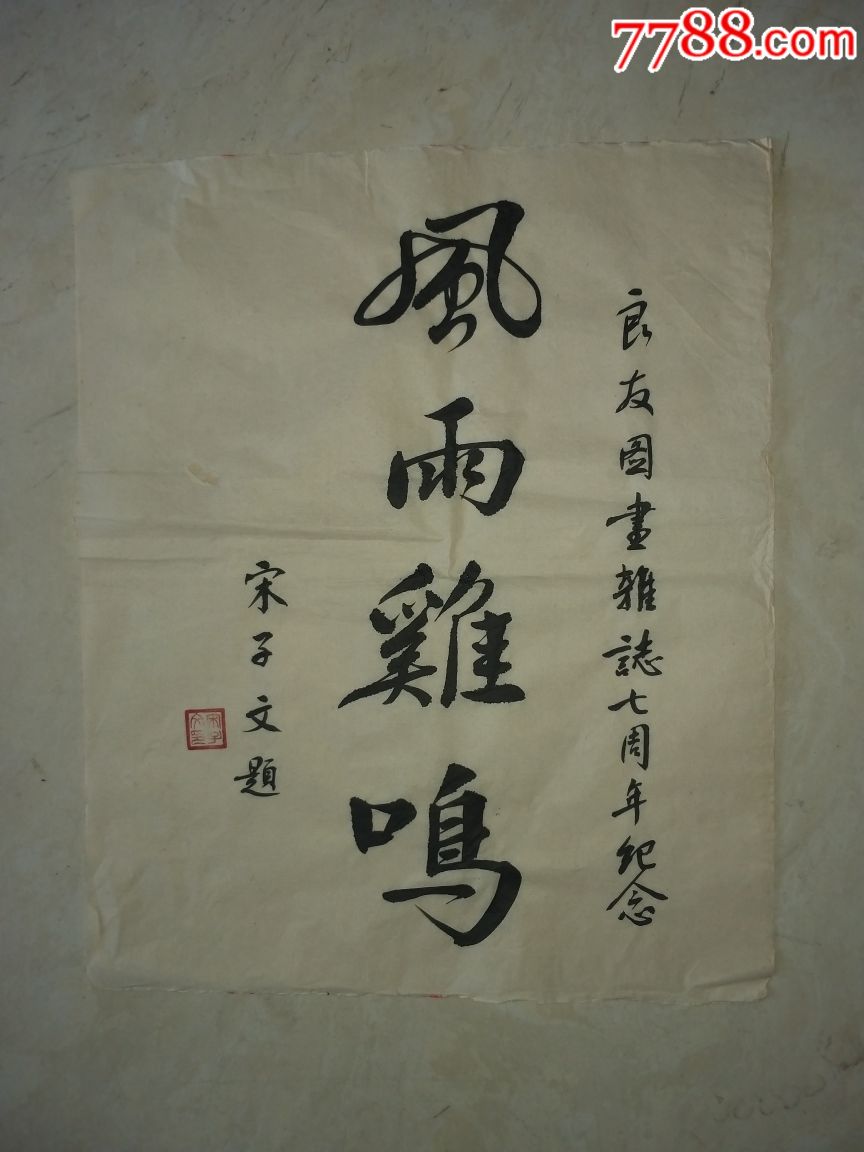 7788.com
良友圖畫雜誌七周年紀念
風雨雞鳴
宋子文題
宋子文印